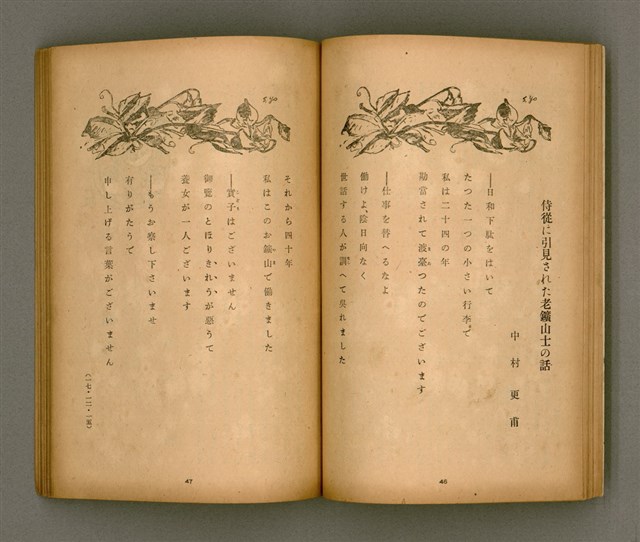 侍從に引見された老鑛山士の話
中村更甫
──日和下駄をはいて
たつた一つの小さい行李で
私は二十四の年
勘當されて渡臺つたのでございます
──仕事を替へるなよ
働けよ、陰日向なく
世話する人が訓へて呉れました
46
それから四十年
私はこのお鑛山で働きました
──實子はございません
御覽のとほりきれうが惡うて
養女が一人ございます
──もうお察し下さいませ
有りがたうて
申し上げる言葉がございません
(一七・一二・一五)
47